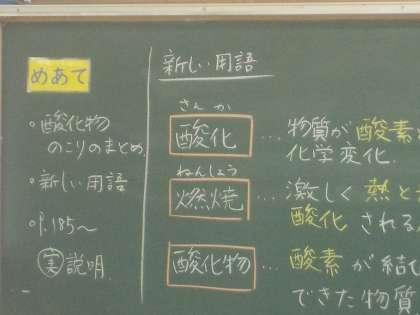 めあて
・酸化物
のこりのまとめ
・新しい用語
・P.185〜
・実説明
新しい用語
さんか
酸化…物質が酸素
化学変化.
ねんしょう
燃焼…激しく熱と
酸化される
酸化物…酸素が結び
できた物質